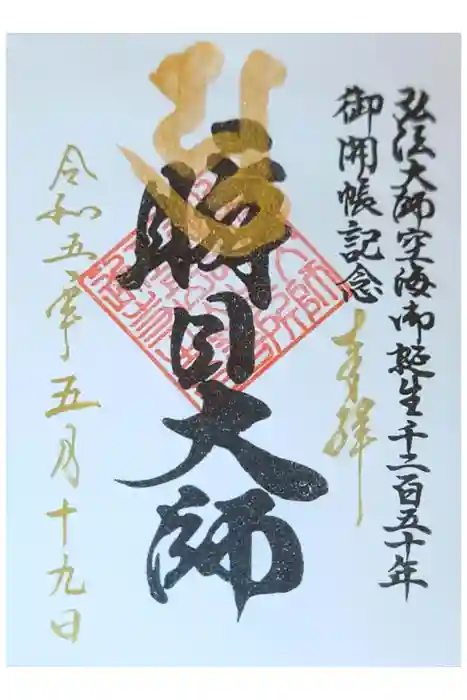 弘法大師空海御誕生千二百五十年
御開帳記念
奉拝
瞬目大師
令和五年五月十九日